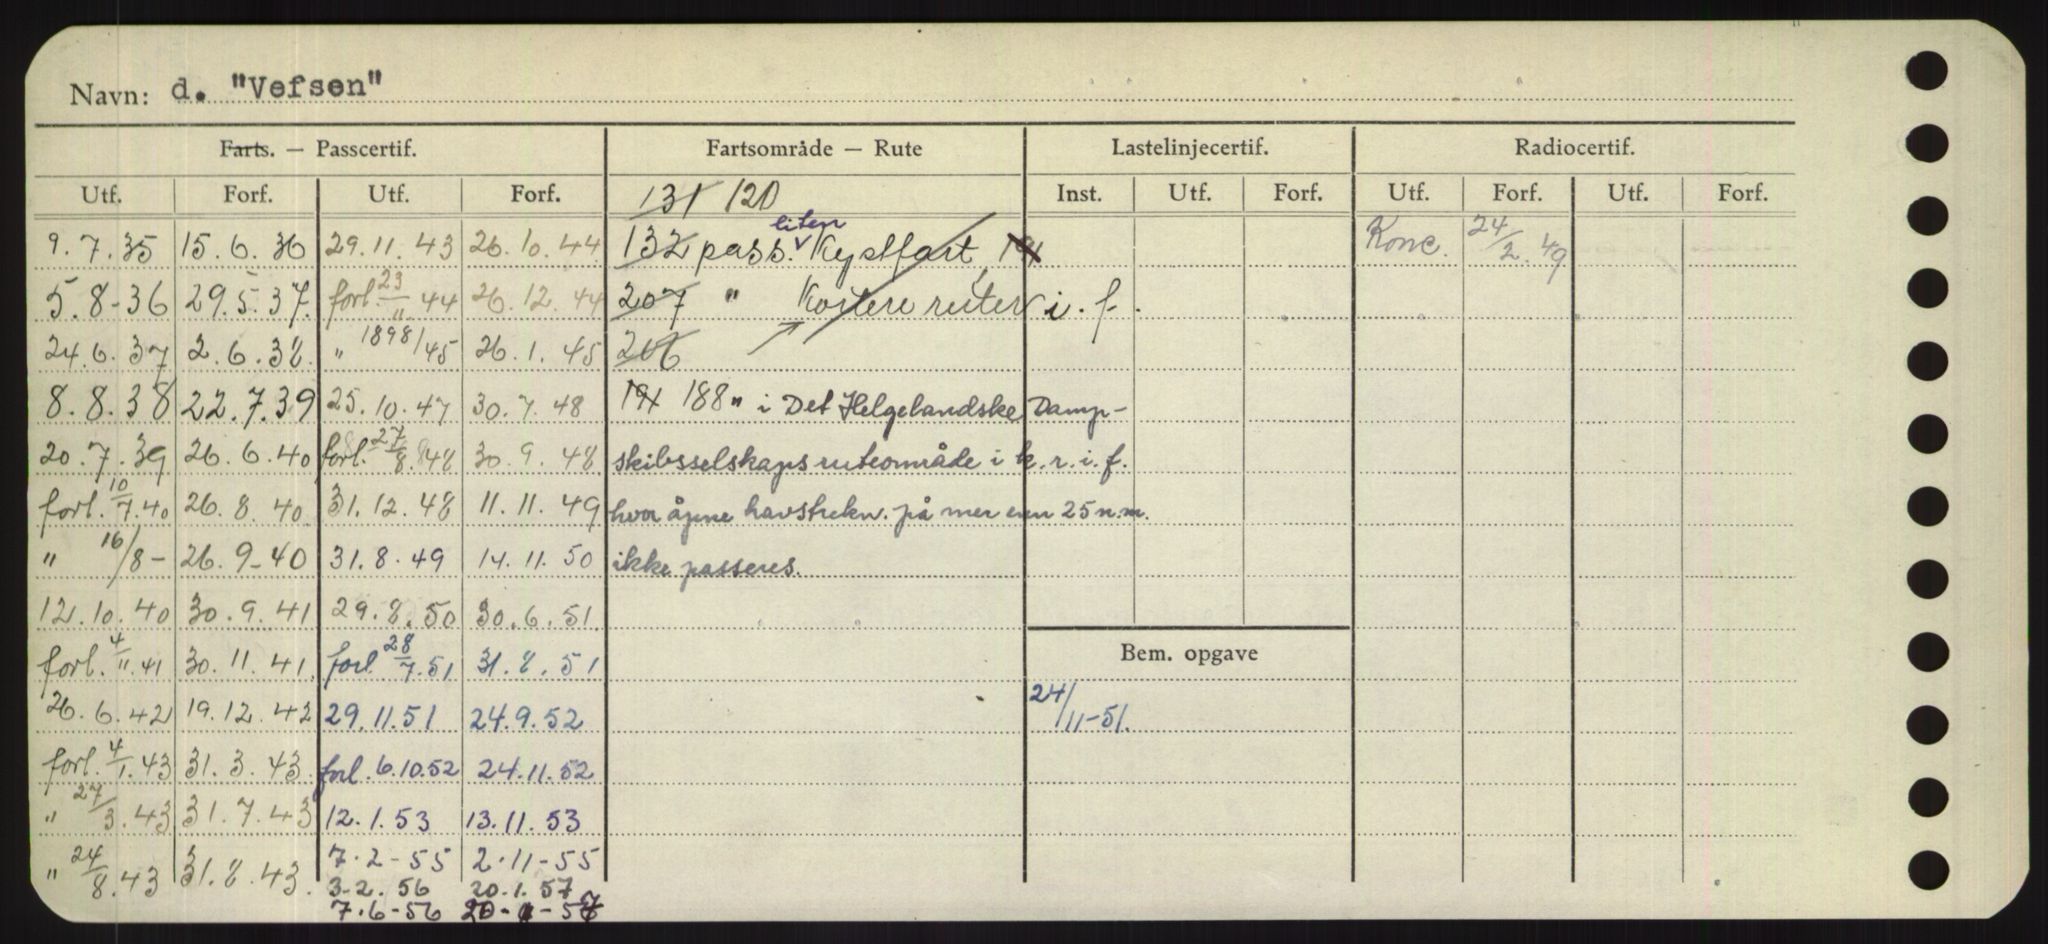 Navn: d. "Vefsen"
Farts. — Passcertif. Fartsområde — Rute Lastelinjecertif. Radiocertif.
Utf. Forf. Utf. Forf. 131 120 Inst. Utf. Forf. Utf. Forf. Utf. Forf.
liten
9.7.35 15.6.36 29.11.43 26.10.44 132 pass. Kystfart, Konc. 24/2.49
5.8-36 29.5.37. forl 23/11.44 26.12.44 207 " Kystere ruter i. f.
24.6.37 2.6.38. " 1898/45 26.1.45 206
8.8.38 22.7.39 25.10.47 30.7.48 191 188 " i Det Helgelandske Damp-
20.7.39 26.6.40 forl. 27/8.48 30.9.48 skibsselskaps ruteområde i k.r.i.f.
forl. 10/7.40 26.8.40 31.12.48 11.11.49 hvor åpne havstrekn. på mer enn 25 n.m.
" 16/8- 26.9-40 31.8.49 14.11.50 ikke passeres.
12.10.40 30.9.41 29.8.50 30.6.51.
forl. 4/11.41 30.11.41. forl. 28/7.51 31.8.51 Bem. opgave
26.6.42 19.12.42 29.11.51 24.9.52 24/11-51.
forl. 4/1.43 31.3.43. forl. 6.10.52 24.11.52
" 27/3.43 31.7.43 12.1.53 13.11.53
" 24/8.43 31.8.43. 7.2-55 2.11-55
3.2.56 20.1.57
7.6-56